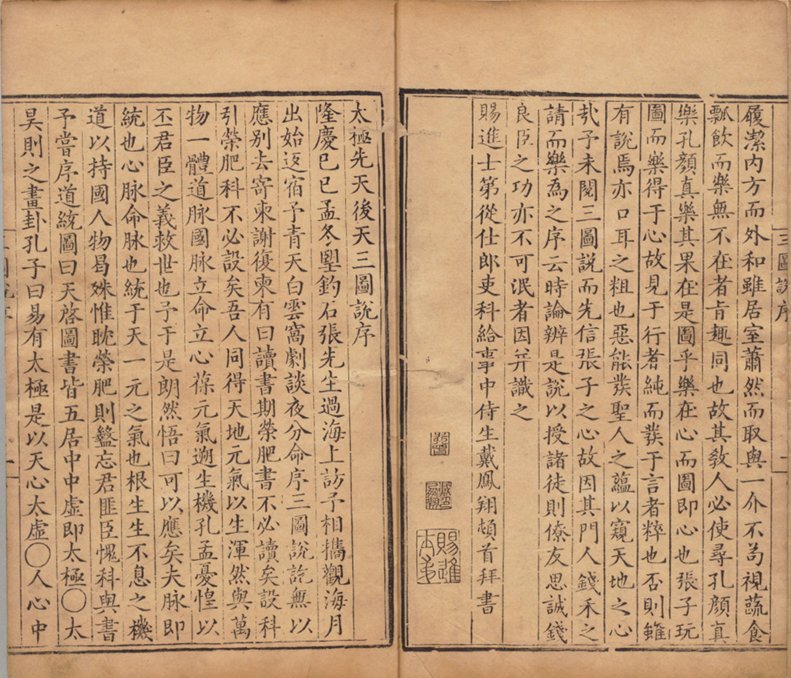 履潔內方而外和雖居室蕭然而取與一介不苟視蔬食
瓢飲而樂無不在者肯趣同也故其教人必使尋孔顏真
樂孔顏真樂其果在是圖乎樂在心而圖即心也張子玩
圖而樂得于心故見于行者純而發于言者粹也否則雖
有說焉亦口耳之粗也惡能發聖人之蘊以窺天地之心
哉予未閱三圖說而先信張子之心故因其門人錢禾之
請而樂為之序云時論辨是說以授諸徒則僚友思誠錢
良臣之功亦不可泯者因并識之
賜進士第從仕郎吏科給事中侍生戴鳳翔頓首拜書
賜進
太極先天後天三圖說序
隆慶己巳孟冬墅釣石張先生過海上訪予相攜觀海月
出始返宿予青天白雲窩劇談夜分命序三圖說訖無以
應別去寄柬謝復柬有曰讀書期榮肥書不必讀矣設科
引榮肥科不必設矣吾人同得天地元氣以生渾然與萬
物一體道脉國脉立命立心葆元氣遡生機孔孟憂惶以
丕君臣之義救世也予于是朗然悟曰可以應矣夫脉即
統也心脉命脉也統于天一元之氣也根生生不息之機
道以持國人物曷殊惟眈榮肥則盭忘君匪臣愧科與書
予嘗序道統圖曰天啓圖書皆五居中中虛即太極〇太
昊則之畫卦孔子曰易有太極是以天心太虛〇人心中